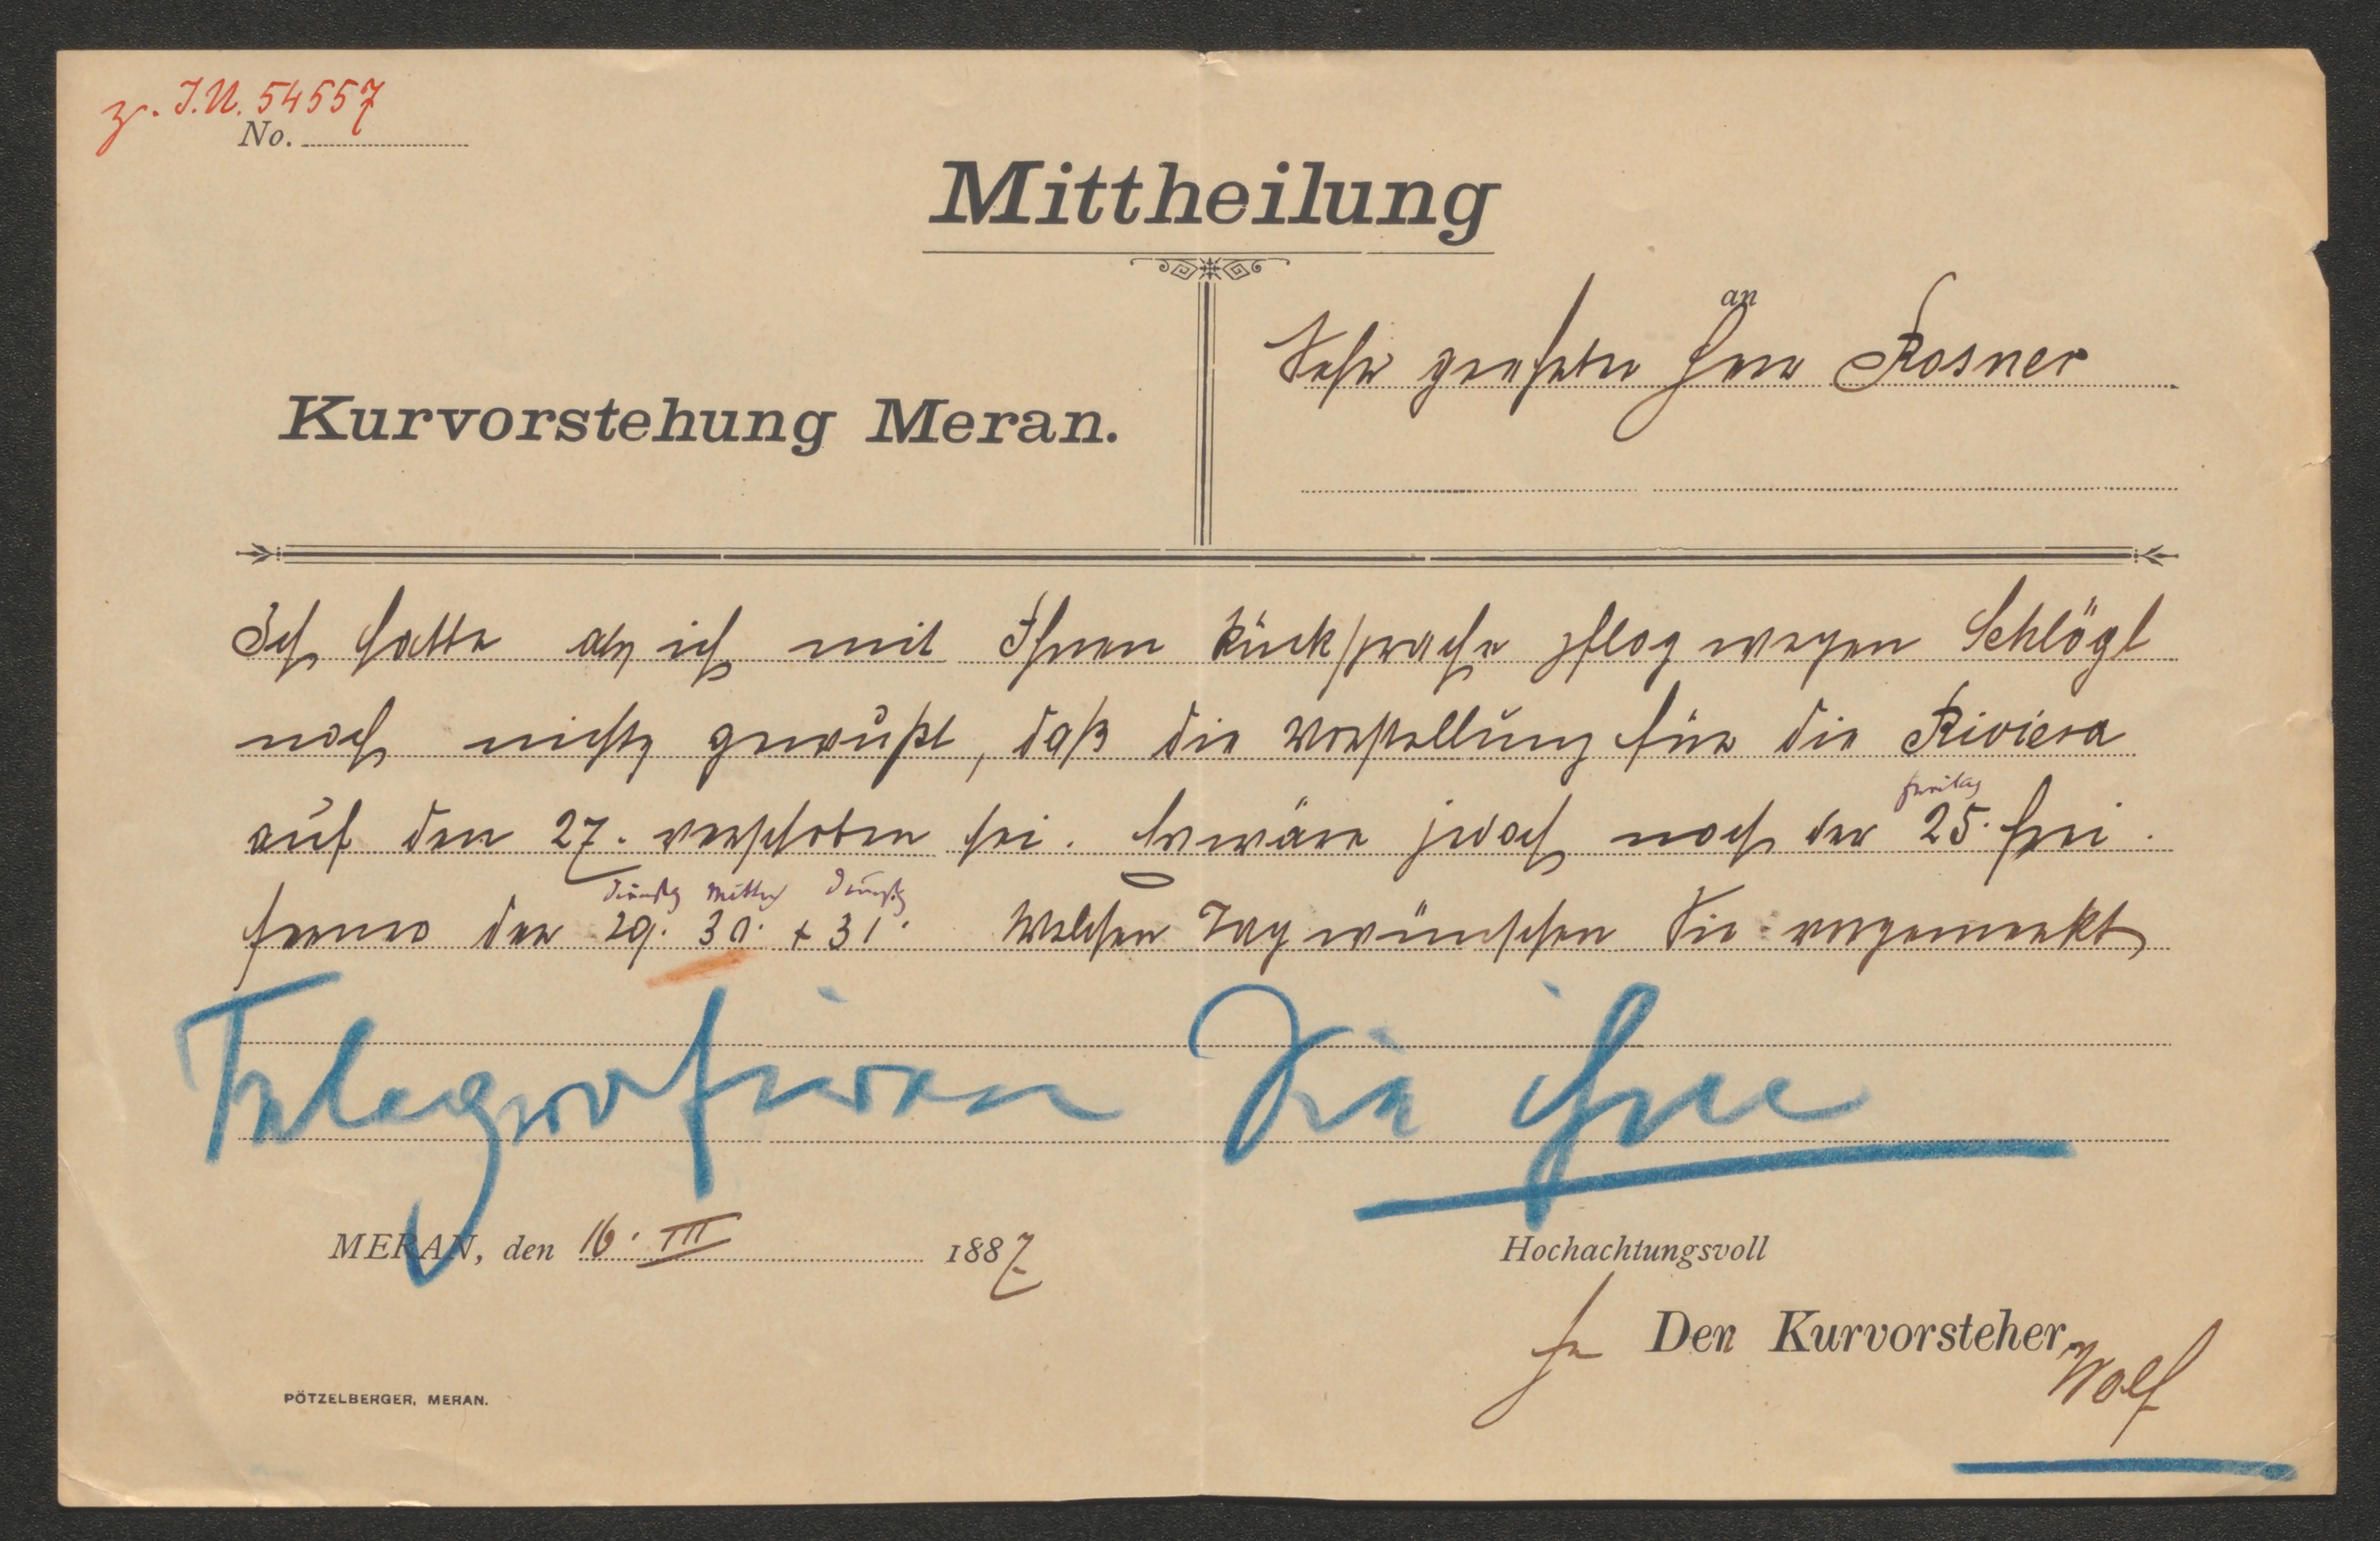 z. I.N. 54557
No.
Mittheilung
Kurvorstehung Meran.
an
Sehr geehrter Herr Rosner
Ich hatte als ich mit Ihnen Rücksprache pflog wegen Schlögl
noch nichts gewußt, daß die Vorstellung für die Riviera
Freitag
auf den 27. verschoben sei. Es wäre jedoch noch der 25. frei.
Dienstg Mittw Donnstg
ferner der 29. 30. + 31. Welchen Tag wünschen Sie vorgemerkt
Telegrafiren Sie ihm
MERAN, den 16. III 1887
Hochachtungsvoll
Den Kurvorsteher
Wolf
PÖTZELBERGER, MERAN.